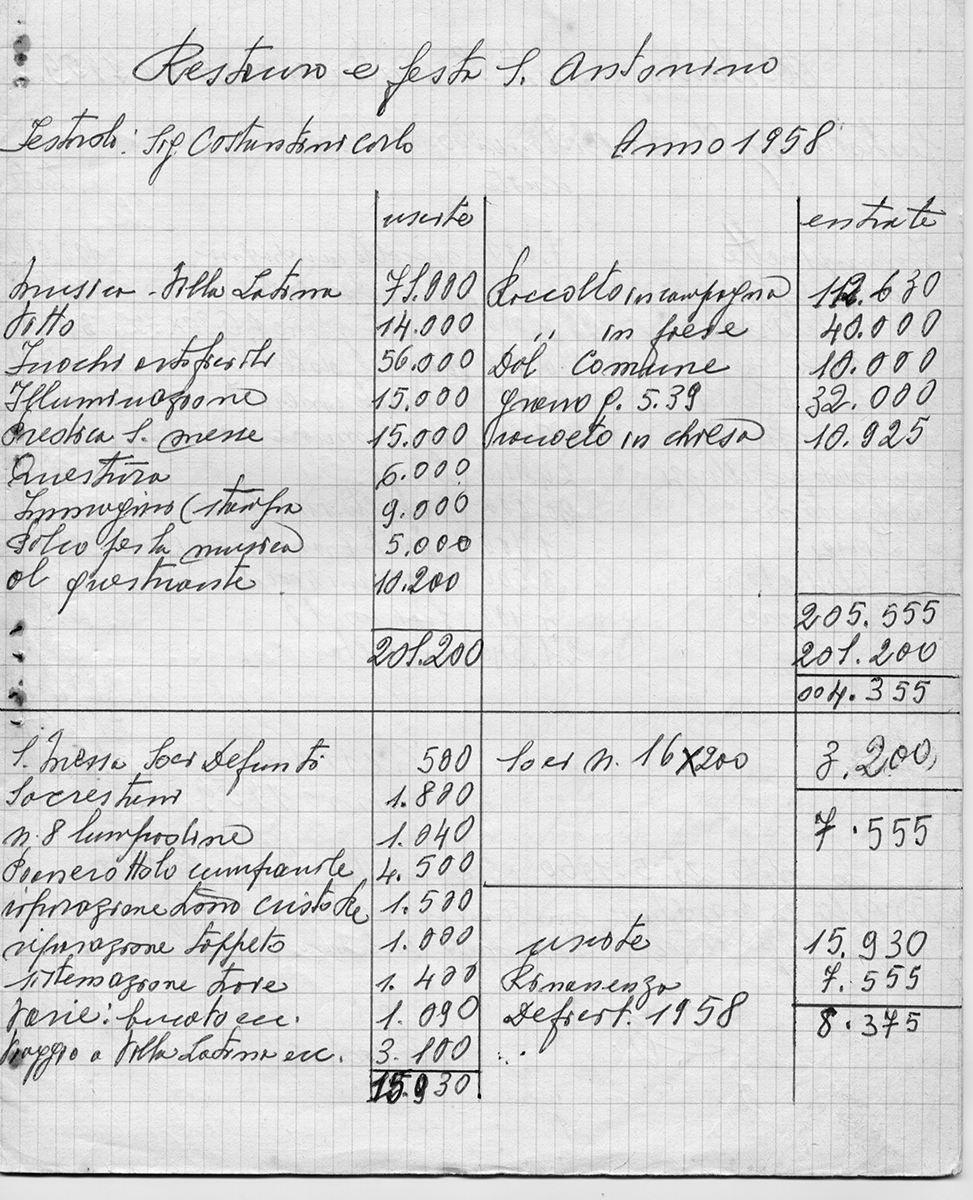 Restauro e festa S. Antonino
Festarolo: Sig Costantini Carlo Anno 1958
uscite entrate
Musica - Villa Latina 71.000 Raccolto in campagna 112.630
Vitto 14.000 ,, in paese 40.000
Fuochi artificiali 56.000 Dal Comune 10.000
Illuminazione 15.000 grano q. 5.39 32.000
Predica S. Messe 15.000 raccolto in chiesa 10.925
Questura 6.000
Immagini (stampa 9.000
Palco festa musica 5.000
al questuante 10.200
205.555
201.200 201.200
004.355
S. Messa Soci Defunti 500 Soci n. 16x200 3.200
Sacrestani 1.800
n. 8 lampadine 1.040 7.555
Pianerottolo campanile 4.500
riparazione custode 1.500
riparazione tappeto 1.000 uscite 15.930
sistemazione 1.400 Rimanenza 7.555
Varie: bucato ecc. 1.090 Deficit. 1958 8.375
Viaggio a Villa Latina ecc. 3.100
15.930